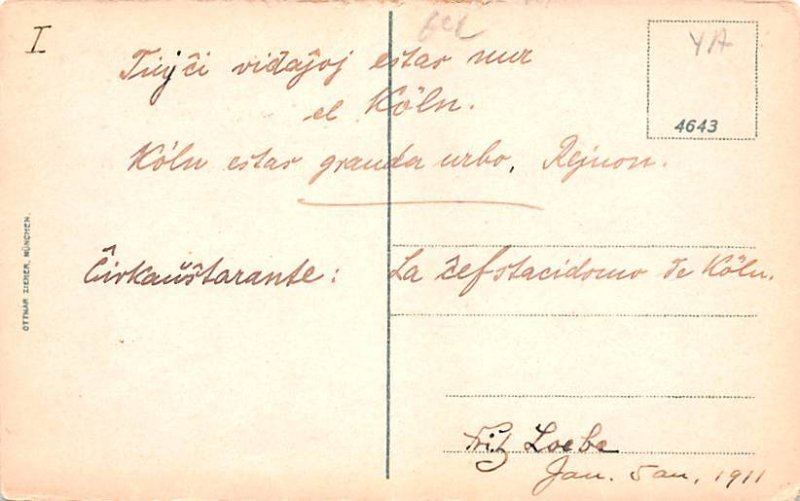 I
Tiujĉi vidaĵoj estas nur
el Köln.
Köln estas granda urbo, Rejnon.
Ĉirkaŭŝtarante: La ĉefstacidomo de Köln.
YA
4643
OTTMAR ZIEHER, MÜNCHEN.
Fritz Loeba
Jan. 5an, 1911